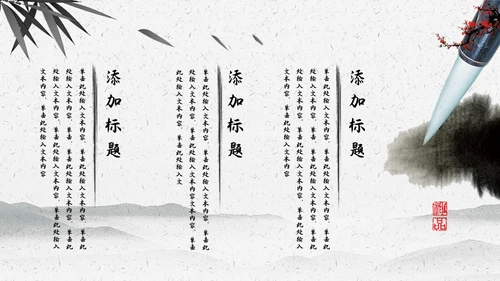 添加标题
单击此处输入文本内容，单击此处输入文本内容，单击此
处输入文本内容，单击此处输入文本内容，单击此处输入
文本内容，单击此处输入文本内容
添加标题
单击此处输入文本内容，单击此处输入文本内容，单击
此处输入文本内容，单击此处输入文
添加标题
单击此处输入文本内容，单击此处输入文本内容，单击此
处输入文本内容，单击此处输入文本内容，单击此处输入
文本内容，单击此处输入文本内容